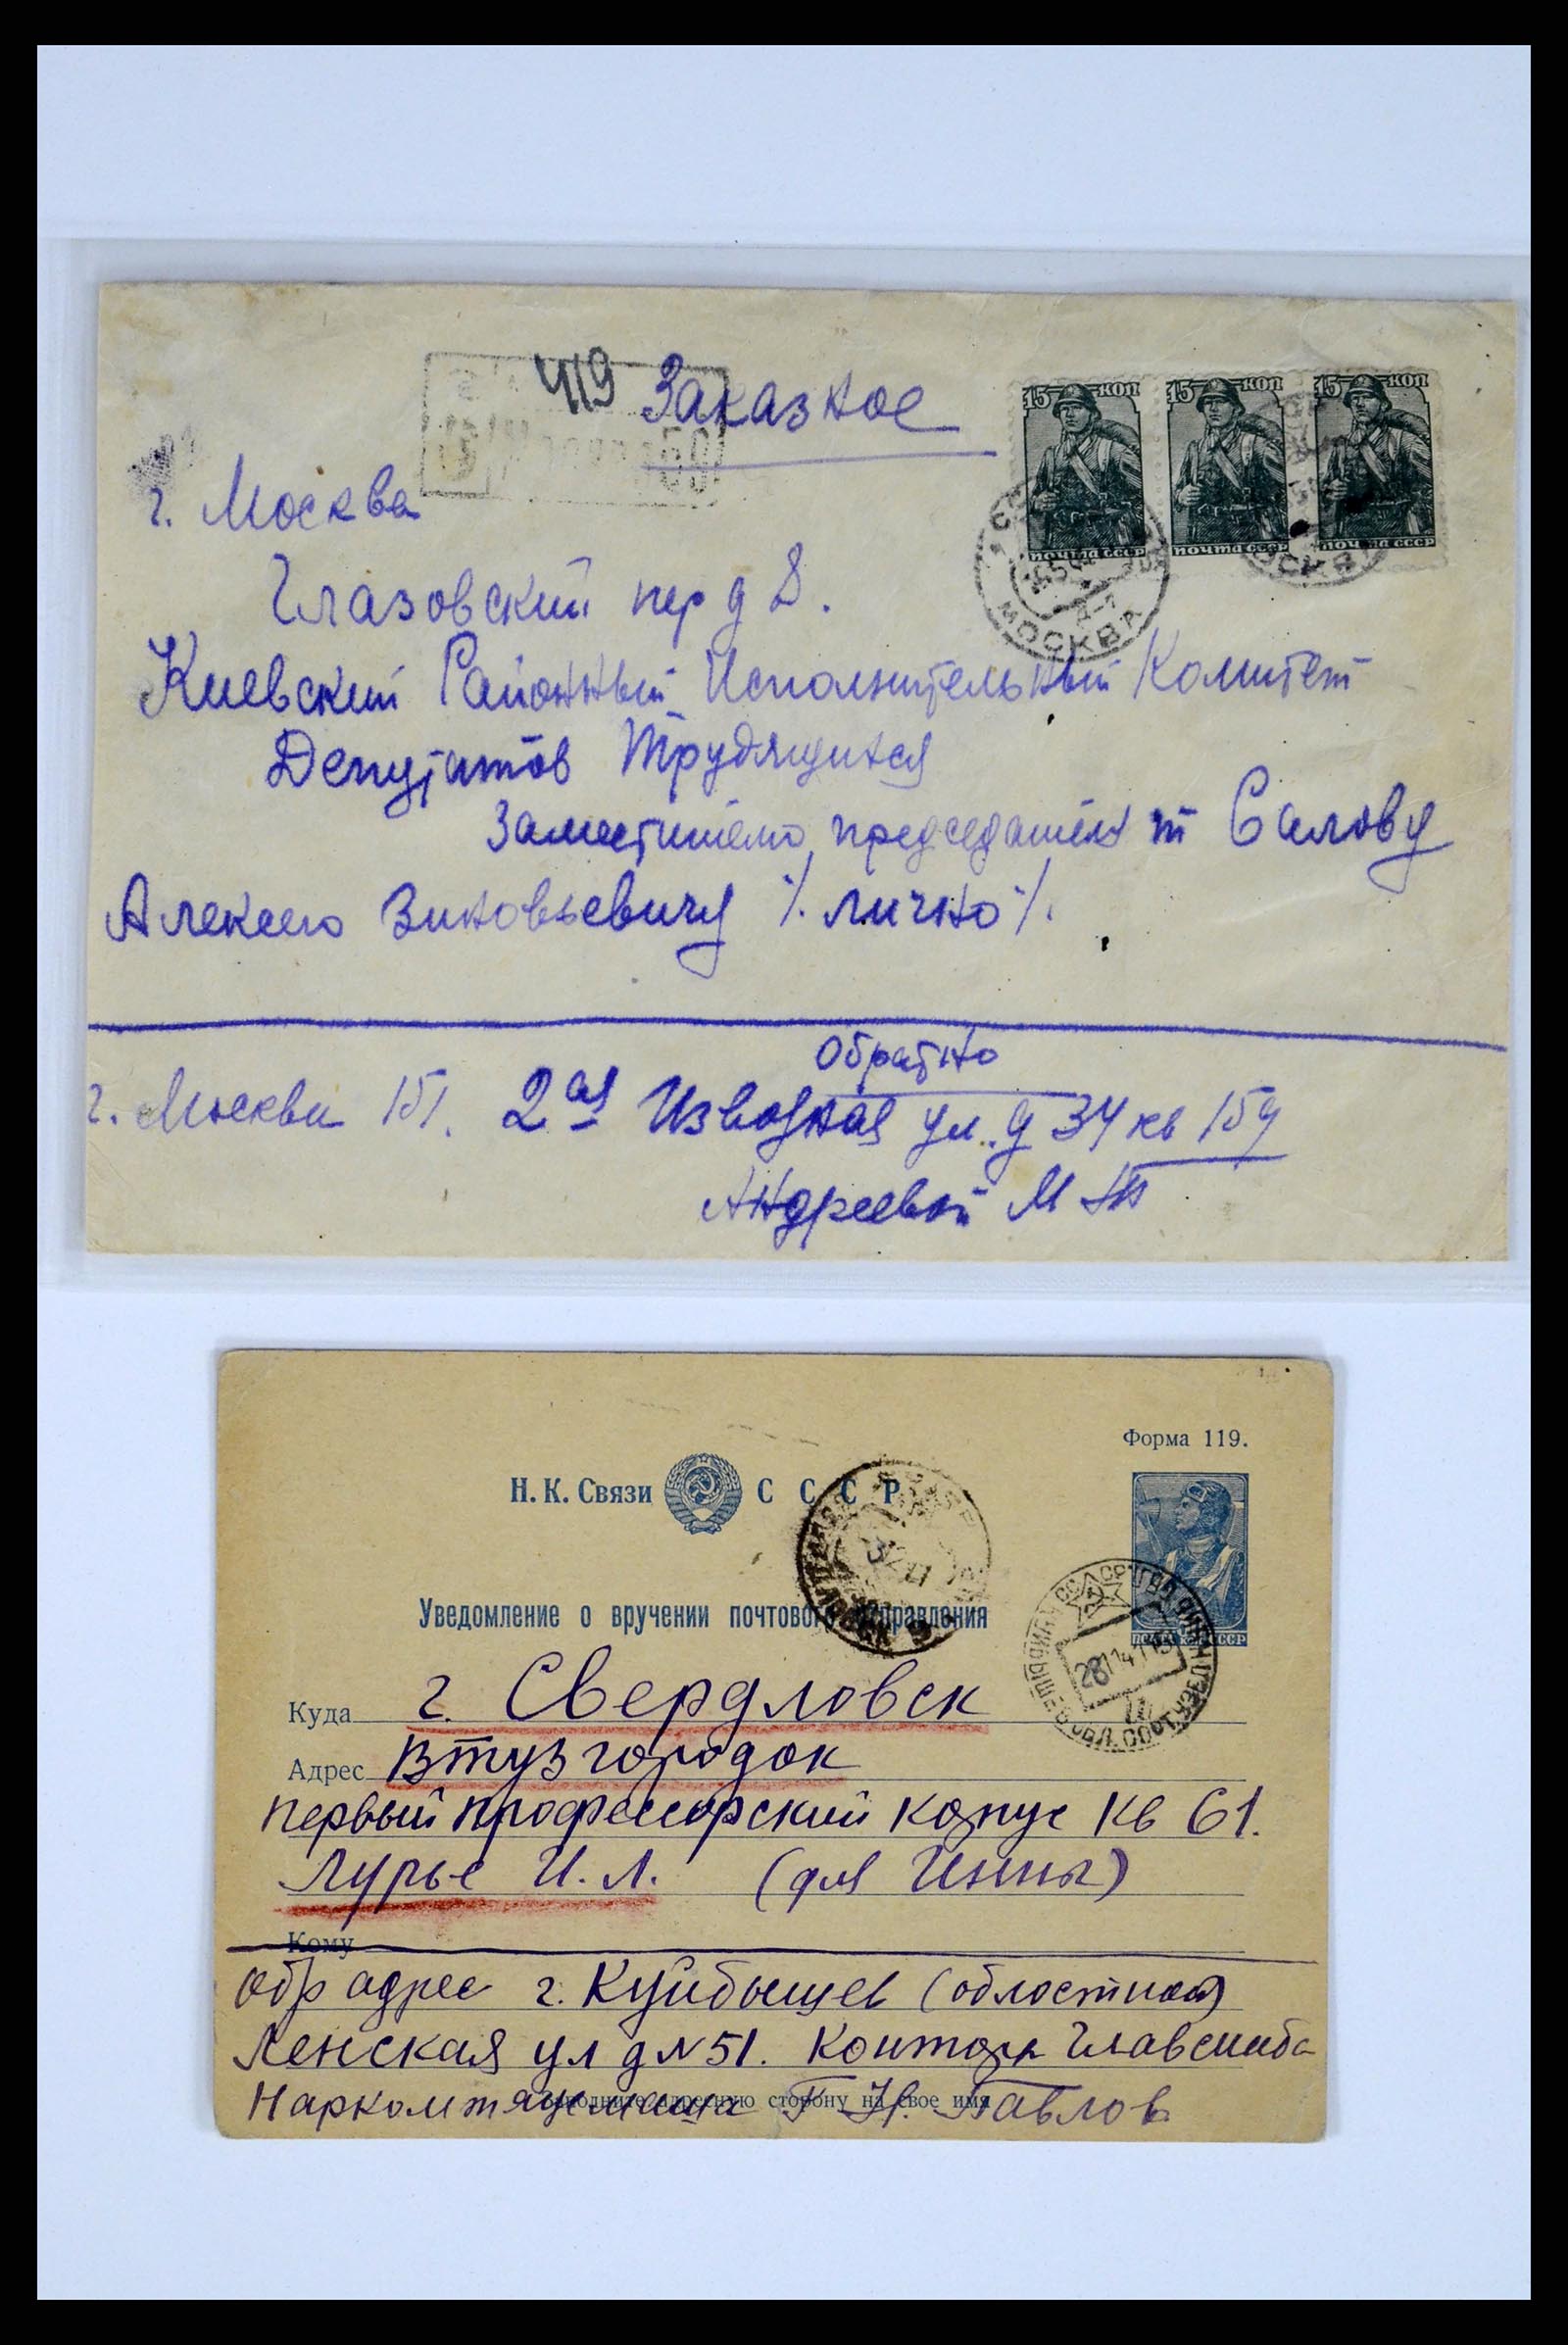 419 Заказное
15 коп 15 коп 15 коп
почта ссср почта ссср почта ссср
МОСКВА
МОСКВА
г. Москва
Глазовский пер д 8.
Киевский Районный Исполнительный Комитет
Депутатов Трудящихся
Заместителю председателя т Салову
Алексею Зиновьевичу /. лично /.
Обратно
г. Москва 151. 2ая Извозная ул. д 34 кв 159
Андреевой М
Форма 119.
Н. К. Связи С С С Р
Уведомление о вручении почтового отправления
Куда г. Свердловск
Адрес Втузгородок
первый профессорский копус кв 61.
Лурье И. Л. (для Инны)
Кому
обр адрес г. Куйбышев (областной)
Ленская ул д N 51. Контора Главснаба
Наркомтяжмаша Г Н. Павлов
Заполните адресную сторону на свое имя